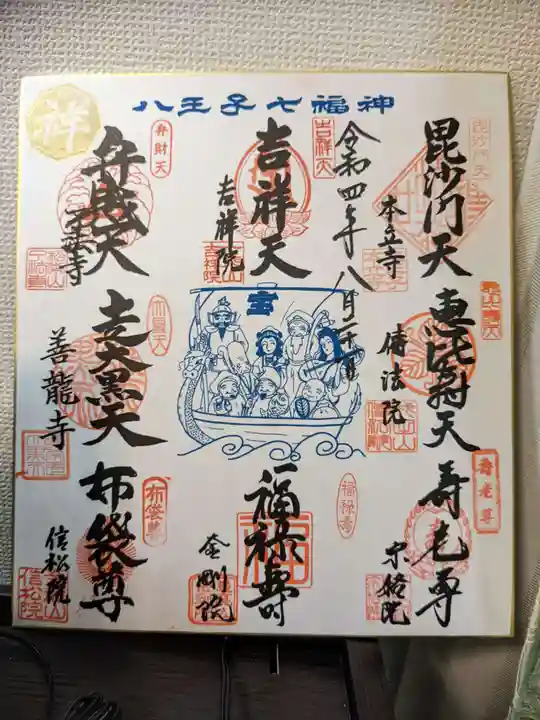 八王子七福神
毘沙門天
毘沙門天
本立寺
令和四年八月二十一日
吉祥天
吉祥天
吉祥院
吉祥院
弁財天
弁財天
祥
恵比寿天
傳法院
宝
走大黒天
善龍寺
寿老尊
寿老尊
宗格院
福禄寿
福禄寿
金剛院
布袋尊
布袋尊
信松院
信松院